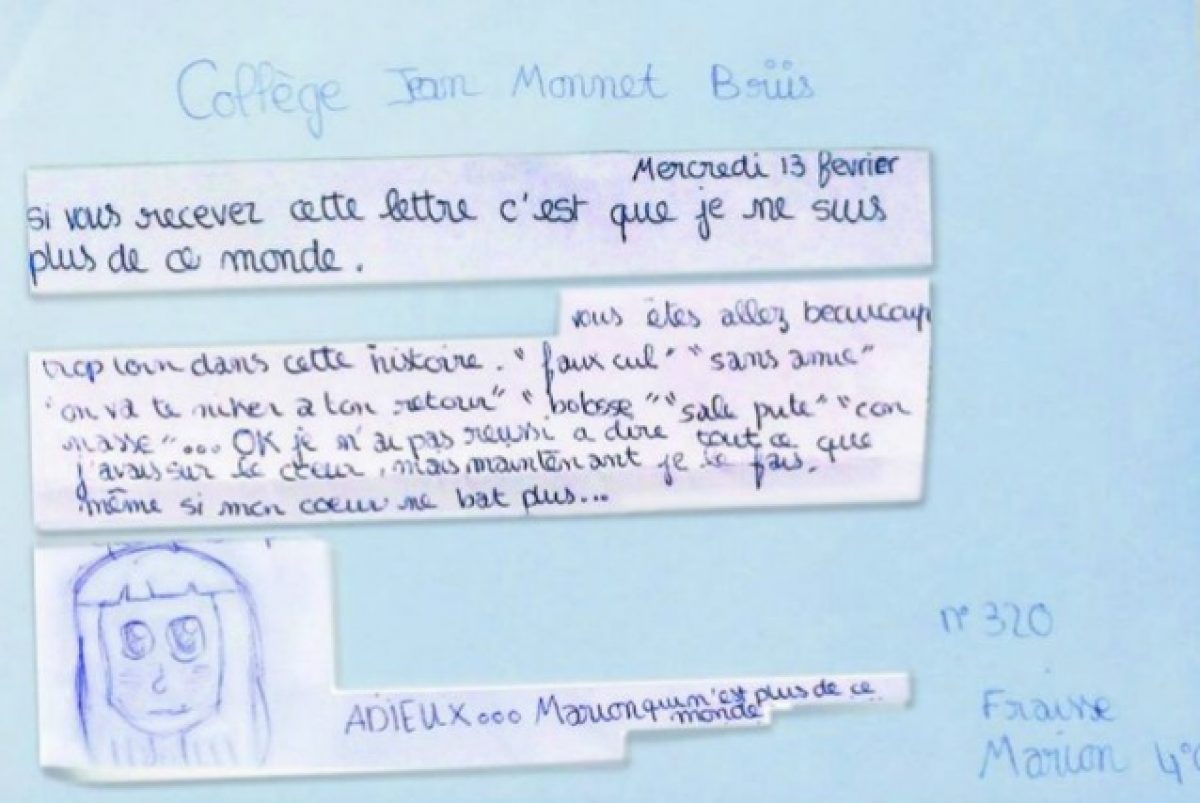 Collège Jean Monnet Brüis
Mercredi 13 fevrier
si vous recevez cette lettre c'est que je ne suis
plus de ce monde.
vous êtes allez beaucoup
trop loin dans cette histoire. "faux cul" "sans amie"
"on va te niker a ton retour" "bolosse" "sale pute" "con
nasse"... OK je n'ai pas reussi a dire tout ce que
j'avais sur le cœur, mais maintenant je le fais,
même si mon coeur ne bat plus...
n° 320
ADIEUX... Marion qui n'est plus de ce
monde
Fraisse
Marion 4°C